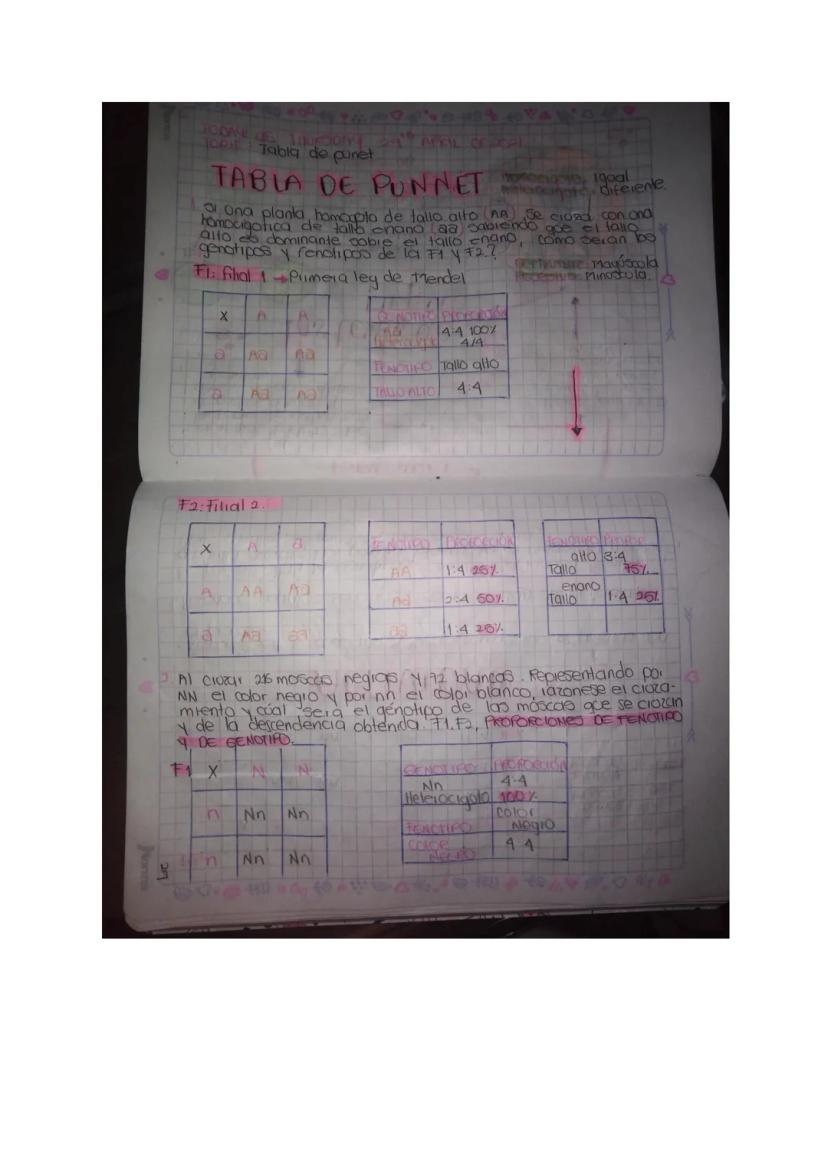 TODAY IS THURSDAY 29th APRIL OF 2021
TOPIC: Tabla de punet
TABLA DE PUNNET
Homocigoto: igual
Heterocigoto: diferente.
1. Si una planta homcigota de tallo alto (AA), se cruza con una
homocigotica de tallo enano (aa) sabiendo que el tallo
alto es dominante sobre el tallo enano, como seran los
genotipos y fenotipos de la F1 y F2?
Dominante: Mayúscula
Recesivo: Minúscula.
F1: filial 1 → Primera ley de Mendel
X A A
a Aa Aa
a Aa Aa
GENOTIPO PROPORCIÓN
Aa 4:4 100%
Heterocigoto 4/4
FENOTIPO Tallo alto
TALLO ALTO 4:4
F2: Filial 2.
X A a
A AA Aa
a Aa aa
FENOTIPO PROPORCIÓN
AA 1:4 25%
Aa 2:4 50%
aa 1:4 25%
FENOTIPO
alto 3:4
Tallo 75%
enano
Tallo 1:4 25%
2. Al cruzar 216 moscas negras y 72 blancas. Representando por
NN el color negro y por nn el color blanco, razonese el cruza-
miento y cúal será el genotipo de las moscas que se cruzan
y de la descendencia obtenida. F1, F2, PROPORCIONES DE FENOTIPO
Y DE GENOTIPO.
F1 X N N
n Nn Nn
n Nn Nn
GENOTIPO PROPORCIÓN
Nn 4:4
Heterocigoto 100%
FENOTIPO color Negro
COLOR NEGRO 4:4
Norma